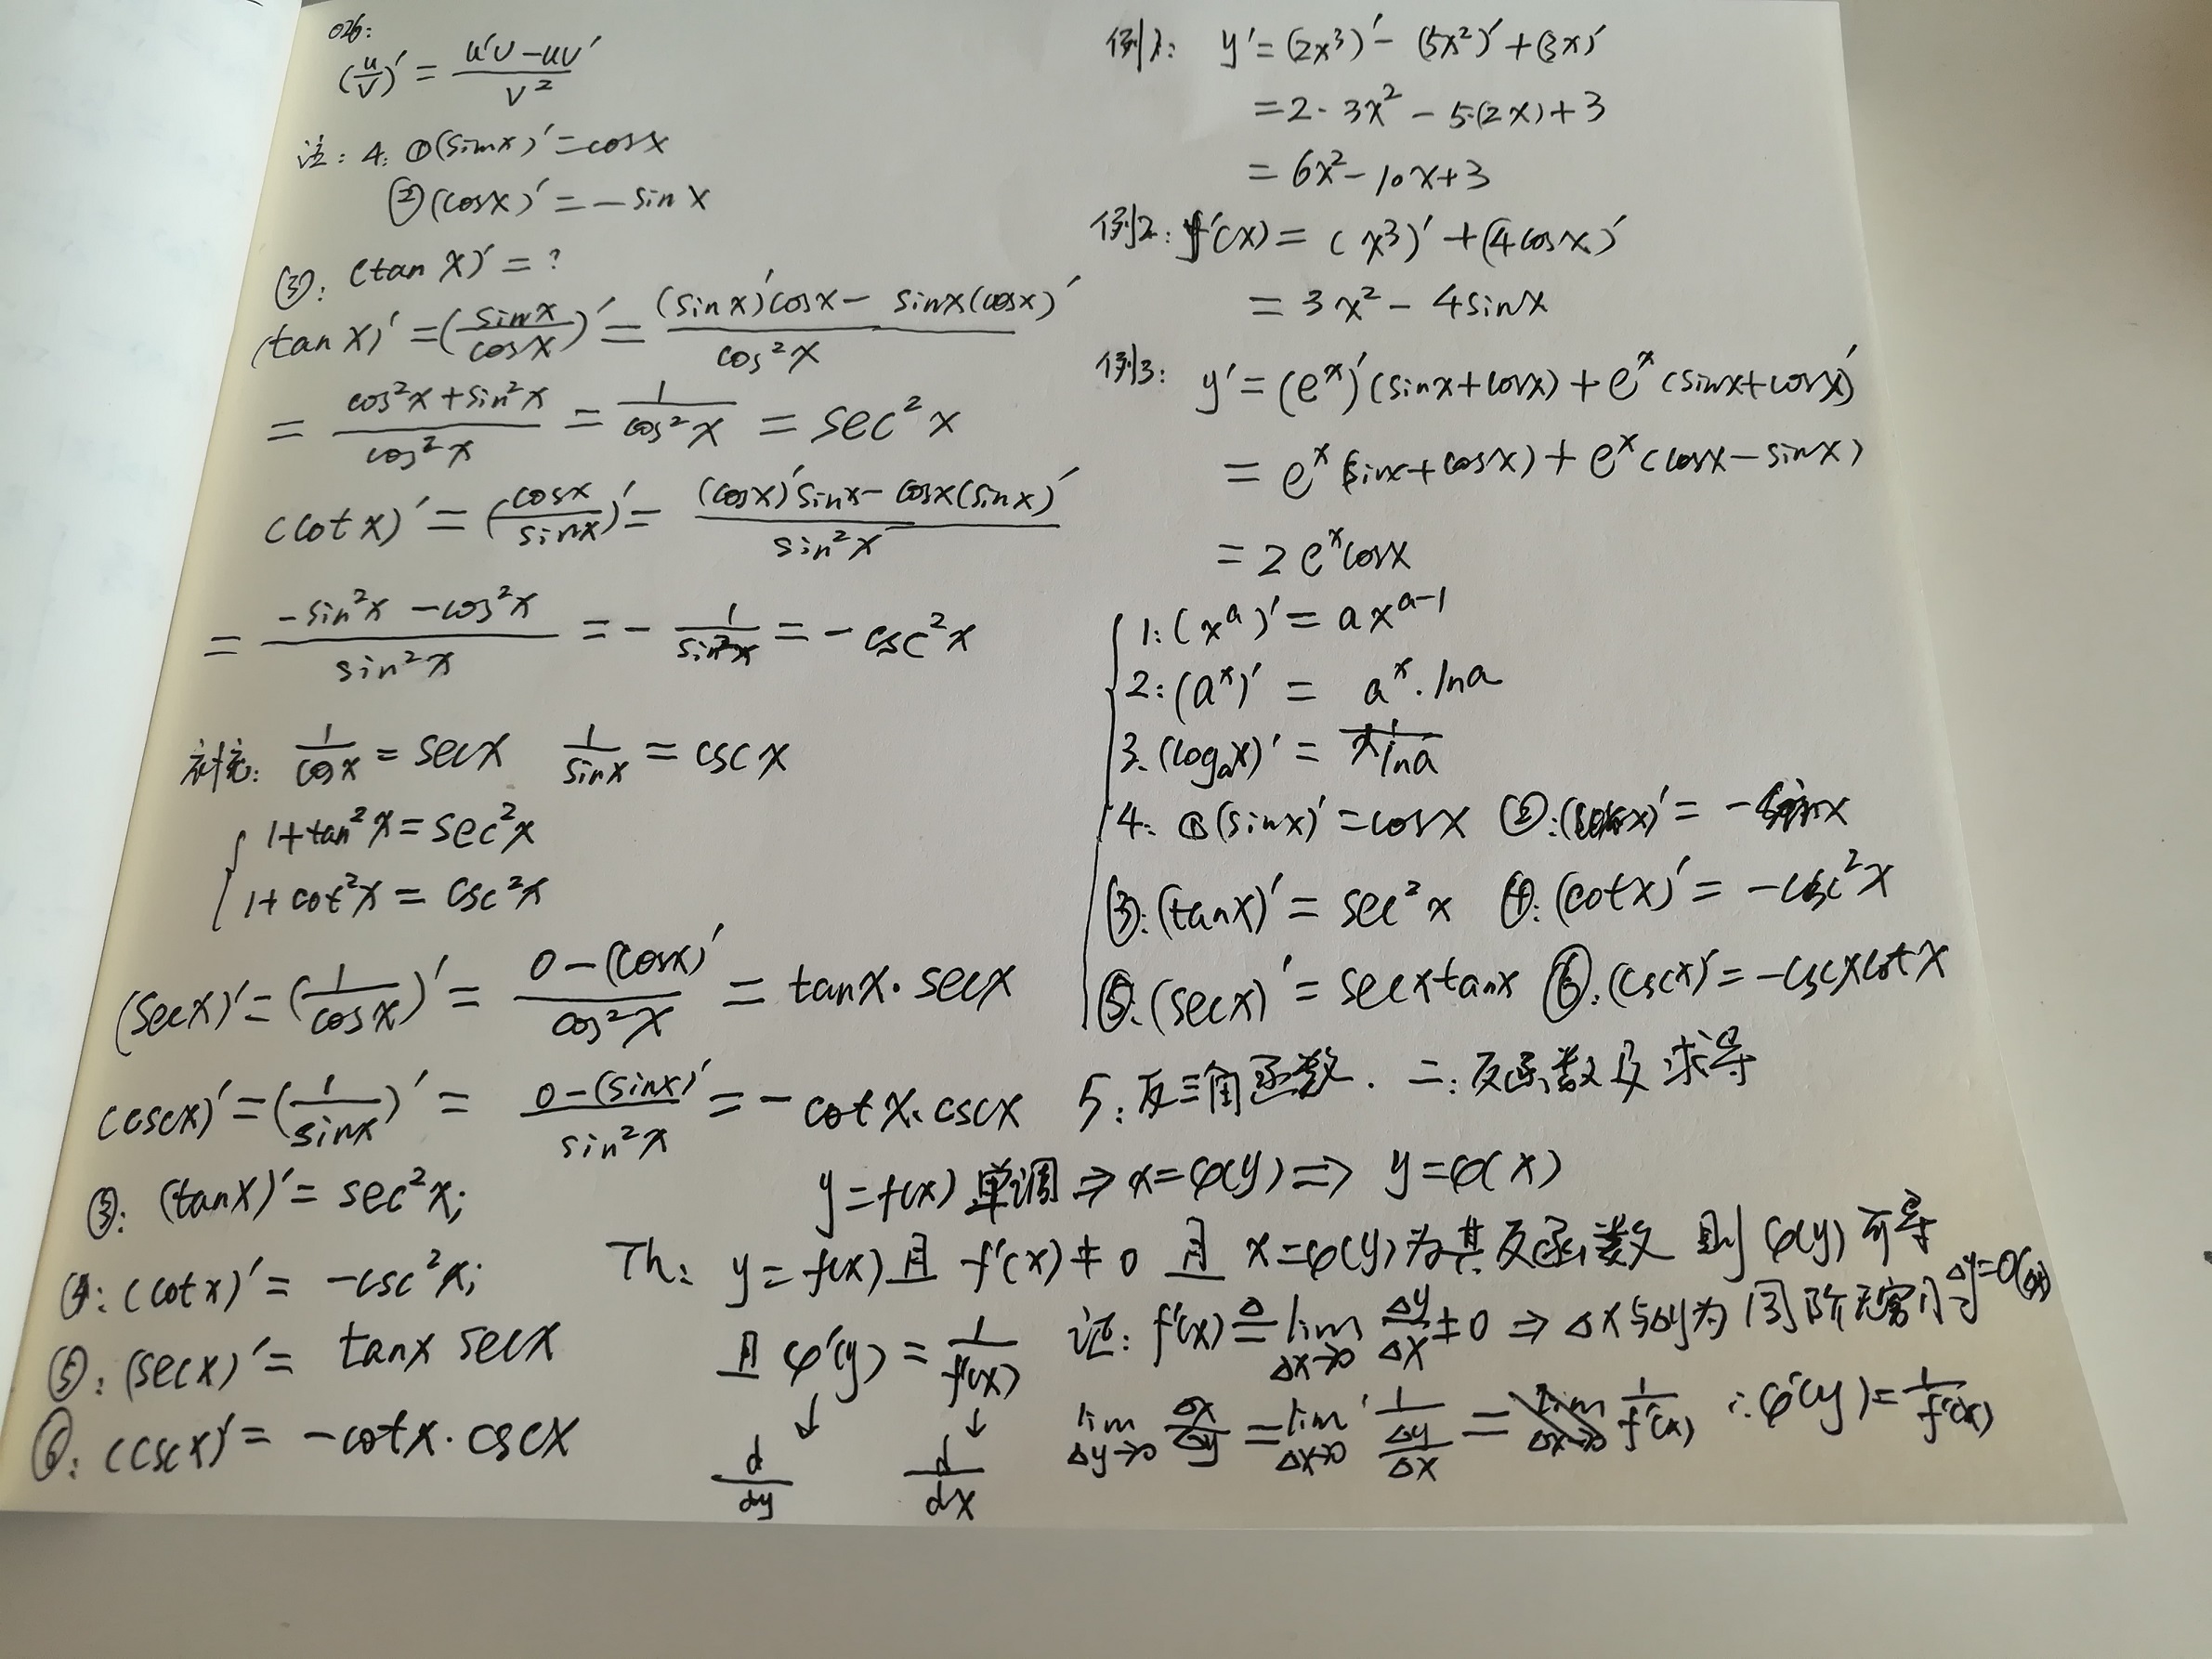 026:
(u/v)′ = (u′v − uv′)/v²
注: 4: ①(sinx)′ = cosx
②(cosx)′ = −sinx
③: (tanx)′ = ?
(tanx)′ = (sinx/cosx)′ = ((sinx)′cosx − sinx(cosx)′)/cos²x
= (cos²x + sin²x)/cos²x = 1/cos²x = sec²x
(cotx)′ = (cosx/sinx)′ = ((cosx)′sinx − cosx(sinx)′)/sin²x
= (−sin²x − cos²x)/sin²x = −1/sin²x = −csc²x
补充: 1/cosx = secx 1/sinx = cscx
{1+tan²x = sec²x
1+cot²x = csc²x
(secx)′ = (1/cosx)′ = (0−(cosx)′)/cos²x = tanx·secx
(cscx)′ = (1/sinx)′ = (0−(sinx)′)/sin²x = −cotx·cscx
③: (tanx)′ = sec²x;
④: (cotx)′ = −csc²x;
⑤: (secx)′ = tanx secx
⑥: (cscx)′ = −cotx·cscx
例1: y′ = (2x³)′ − (5x²)′ + (3x)′
= 2·3x² − 5·(2x) + 3
= 6x² − 10x + 3
例2: f′(x) = (x³)′ + (4cosx)′
= 3x² − 4sinx
例3: y′ = (eˣ)′(sinx+cosx) + eˣ(sinx+cosx)′
= eˣ(sinx+cosx) + eˣ(cosx−sinx)
= 2eˣcosx
{1: (xᵃ)′ = axᵃ⁻¹
2: (aˣ)′ = aˣ·lna
3. (logₐx)′ = 1/(xlna)
4. ①(sinx)′ = cosx ②:(cosx)′ = −sinx
③: (tanx)′ = sec²x ④: (cotx)′ = −csc²x
⑤: (secx)′ = secxtanx ⑥: (cscx)′ = −cscxcotx
5: 反三角函数. 二: 反函数及求导
y=f(x)单调 ⇒ x=φ(y) ⇒ y=φ(x)
Th: y=f(x)且 f′(x)≠0 且 x=φ(y)为其反函数 则 φ(y)可导
且 φ′(y) = 1/f′(x)
↓ ↓
d/dy d/dx
证: f′(x) ≜ lim Δx→0 Δy/Δx ≠ 0 ⇒ Δx与Δy为同阶无穷小 Δy=O(Δx)
lim Δy→0 Δx/Δy = lim Δx→0 1/(Δy/Δx) = 1/f′(x) ∴φ′(y) = 1/f′(x)